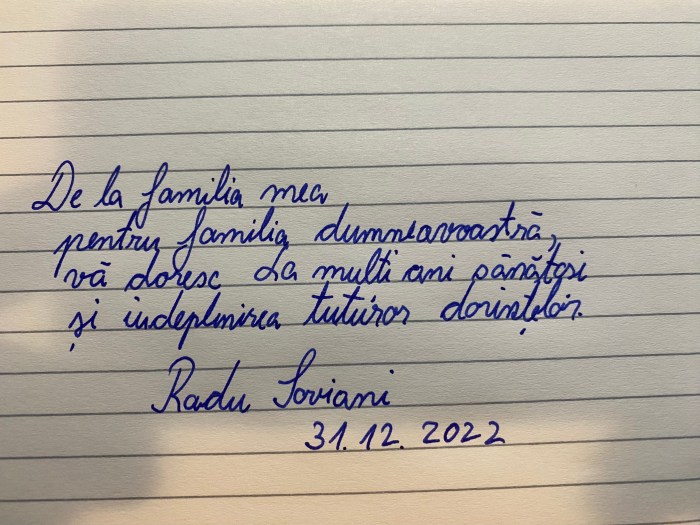 De la familia mea
pentru familia dumneavoastră,
vă doresc La multi ani sănătoși
și indeplinirea tuturor dorințelor.
Radu Soviani
31.12.2022